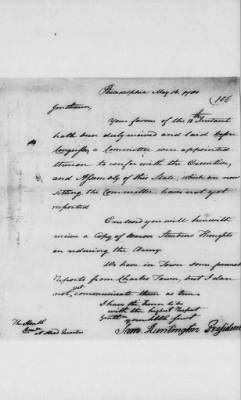 Philadelphia May 16. 1780
(186
Gentlemen,
Your favour of the Instant
hath been duly received and laid before
Congress, a Committee were appointed
thereon to confer with the Executive,
and Assembly of this State, which are now
sitting the Committee have not yet
reported
Enclosed you will herewith
receive a Copy of Thoughts
on reducing the Army.
We have in Town some
Reports from Charles Town, but I dare
not yet communicate them as true.
I have the honour to be
with the highest Respect
Gentn your obdt servt
Sam Huntington President
The
Comee
at Head Quarters